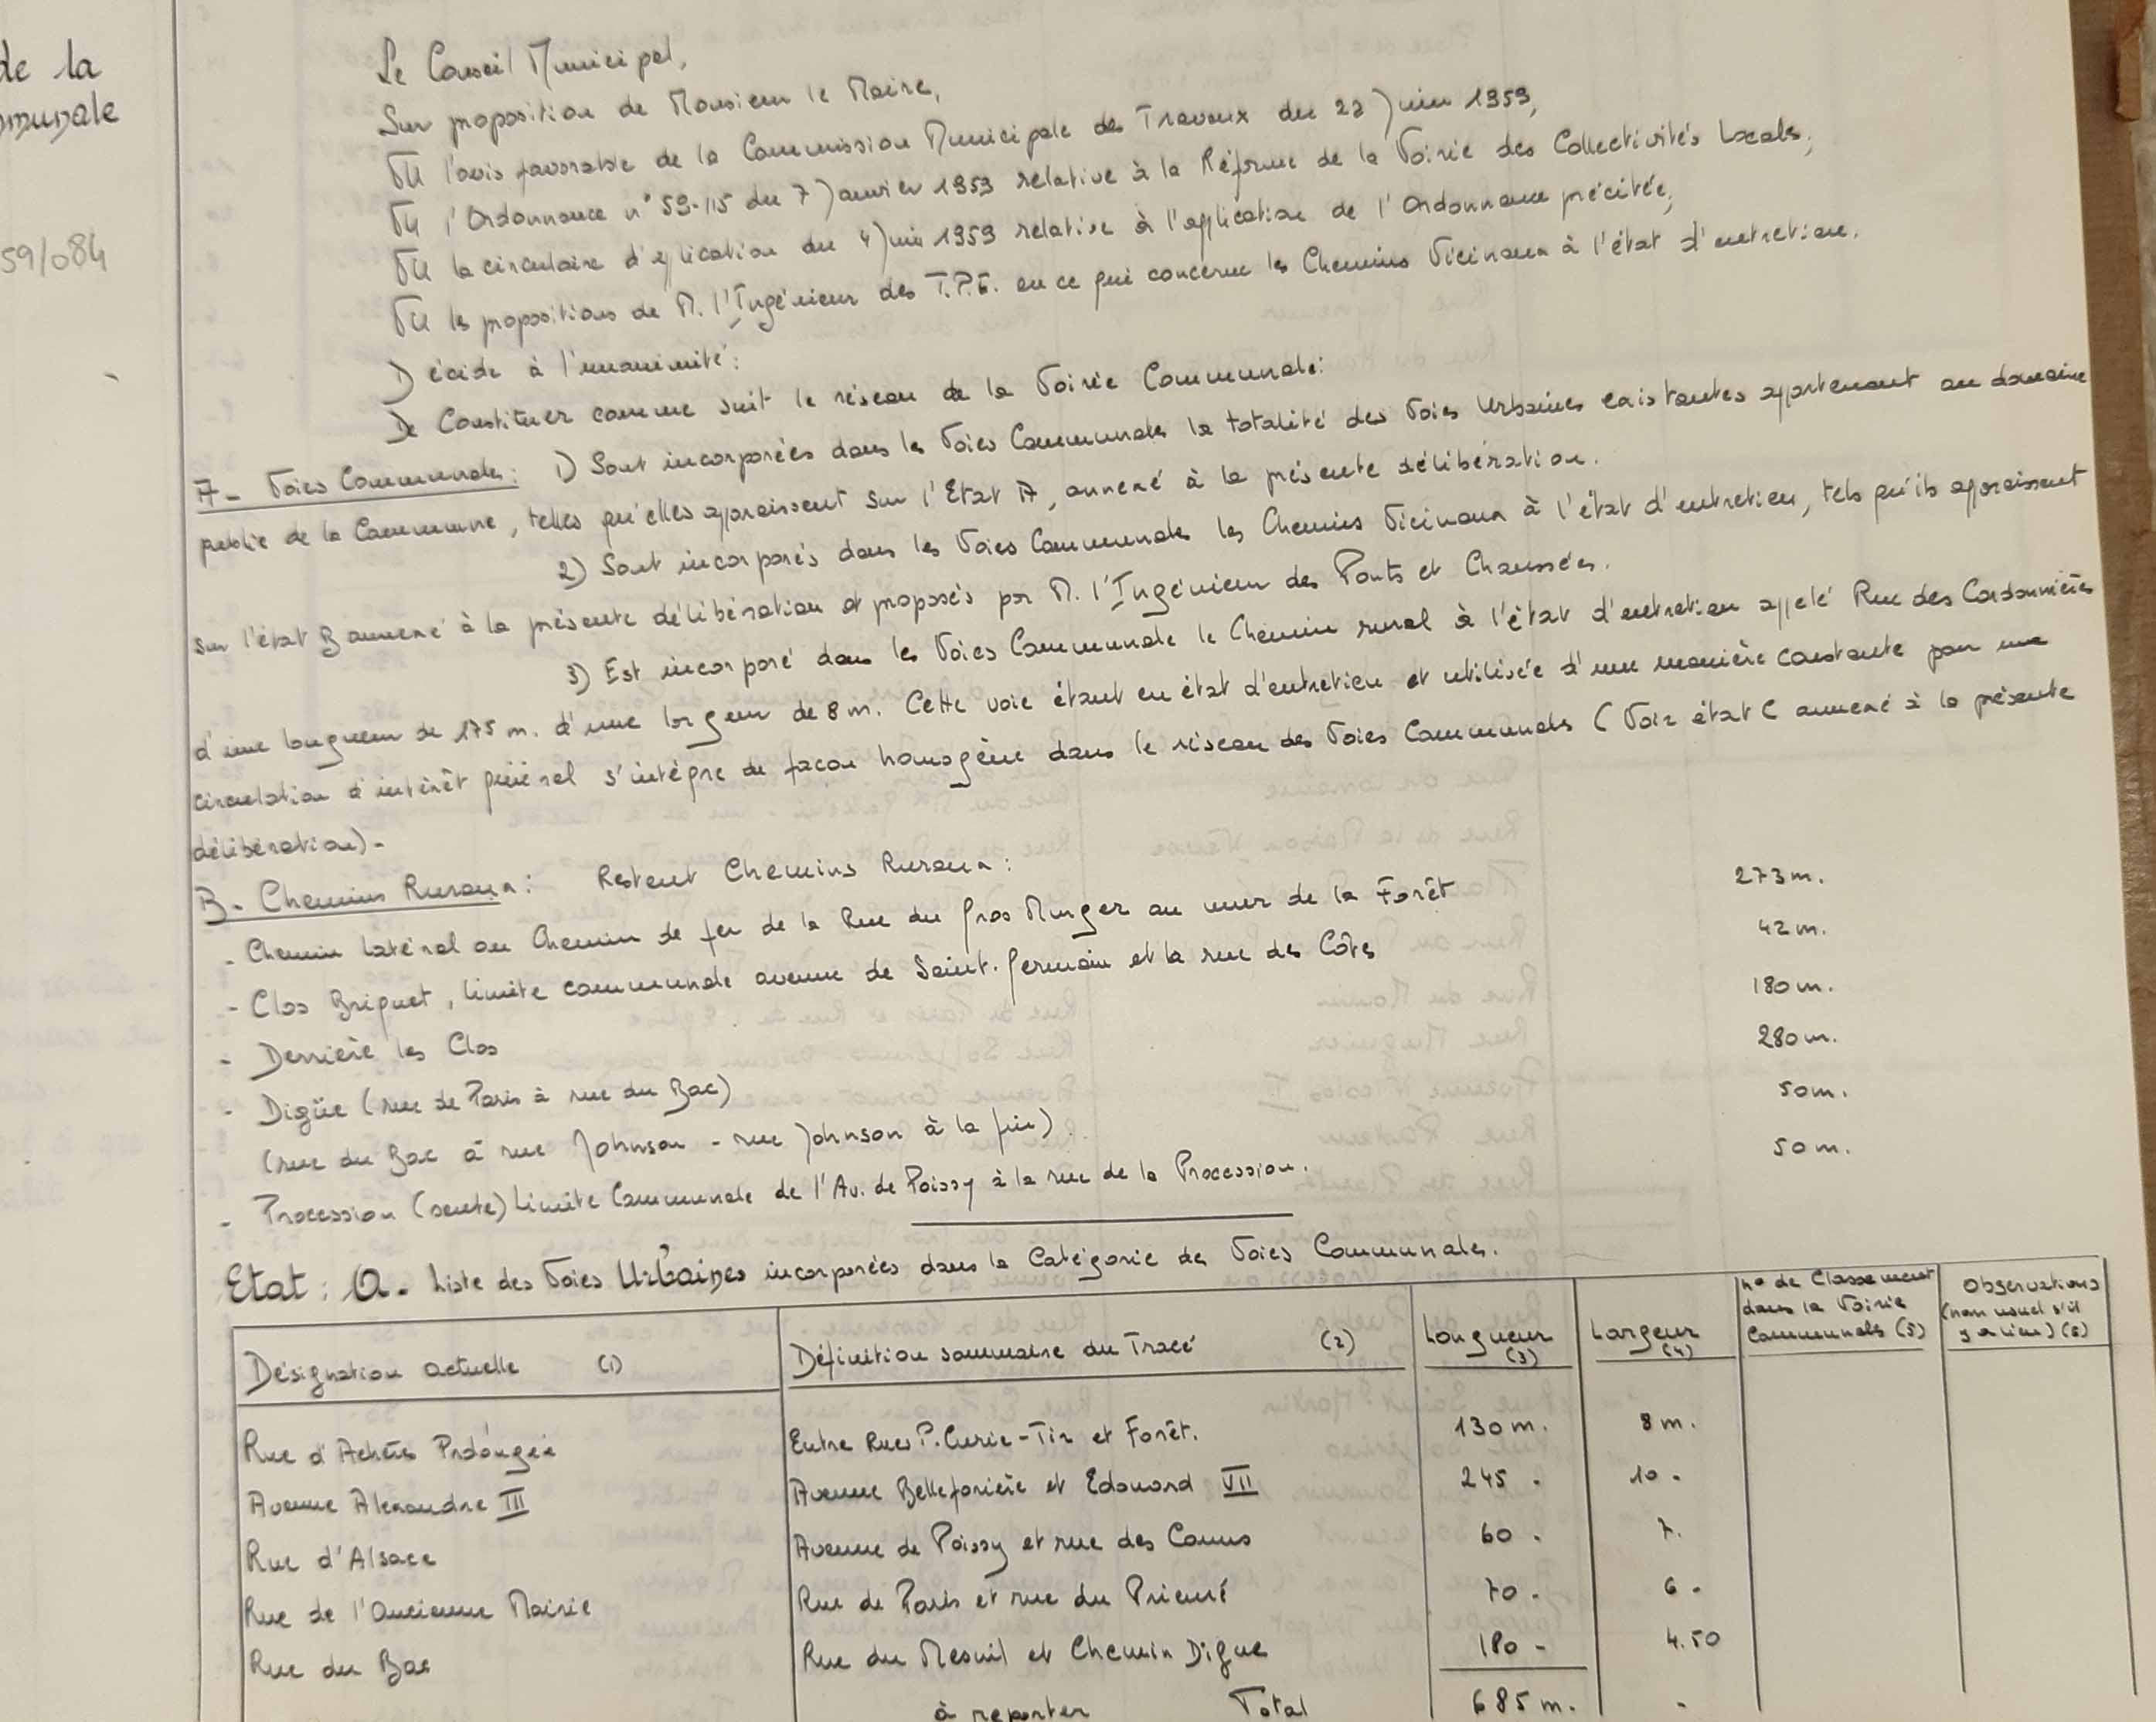 de la
mmunale
59/084
Le Conseil Municipal,
Sur proposition de Monsieur le Maire,
VU l'avis favorable de la Commission Municipale des Travaux du 22 Juin 1959,
VU l'Ordonnance n° 59-115 du 7 Janvier 1959 relative à la Réforme de la Voirie des Collectivités Locales,
VU la circulaire d'plication du 4 Juin 1959 relative à l'application de l'Ordonnance précitée,
VU les propositions de M. l'Ingénieur des T.P.E. en ce qui concerne les Chemins Vicinaux à l'état d'entretien.
Décide à l'unanimité :
De Constituer comme suit le réseau de la Voirie Communale :
A - Voies Communales : 1) Sont incorporées dans les Voies Communales la totalité des Voies Urbaines existantes appartenant au domaine
public de la Commune, telles qu'elles apparaissent sur l'Etat A, annexé à la présente délibération.
2) Sont incorporés dans les Voies Communales les Chemins Vicinaux à l'état d'entretien, tels qu'ils apparaissent
sur l'état B annexé à la présente délibération et proposés par M. l'Ingénieur des Ponts et Chaussées.
3) Est incorporé dans les Voies Communale le Chemin rural à l'état d'entretien appelé Rue des Cordonnières
d'une longueur de 175 m. d'une largeur de 8 m. Cette voie étant en état d'entretien et utilisée d'une manière constante par une
circulation d'intérêt général s'intègre de façon homogène dans le réseau des Voies Communales (Voir état C annexé à la présente
délibération) -
B - Chemins Ruraux : Restent Chemins Ruraux :
- Chemin latéral au Chemin de fer de la Rue du Gros Murger au mur de la Forêt 273 m.
- Clos Briquet, limite communale avenue de Saint-Germain et la rue des Côtes 42 m.
- Derrière les Clos 180 m.
- Digüe (rue de Paris à rue du Bac) 280 m.
(rue du Bac à rue Johnson - rue Johnson à la fin) 50 m.
- Procession (sente) Limite Communale de l'Av. de Poissy à la rue de la Procession. 50 m.
Etat : A - Liste des Voies Urbaines incorporées dans la Catégorie de Voies Communales.
Désignation actuelle (1) Définition sommaire du Tracé (2) Longueur (3) Largeur (4) n° de Classement dans la Voirie Communale (5) Observations (nom usuel s'il y a lieu) (6)
Rue d'Achères Prolongée Entre Rues P. Curie - Tir et Forêt. 130 m. 8 m.
Avenue Alexandre III Avenue Belleforière et Edouard VII 245 - 10 -
Rue d'Alsace Avenue de Poissy et rue des Canus 60 - 7.
Rue de l'Ancienne Mairie Rue de Paris et rue du Prieuré 70 - 6 -
Rue du Bac Rue du Mesnil et Chemin Digue 180 - 4.50
à reporter Total 685 m. -